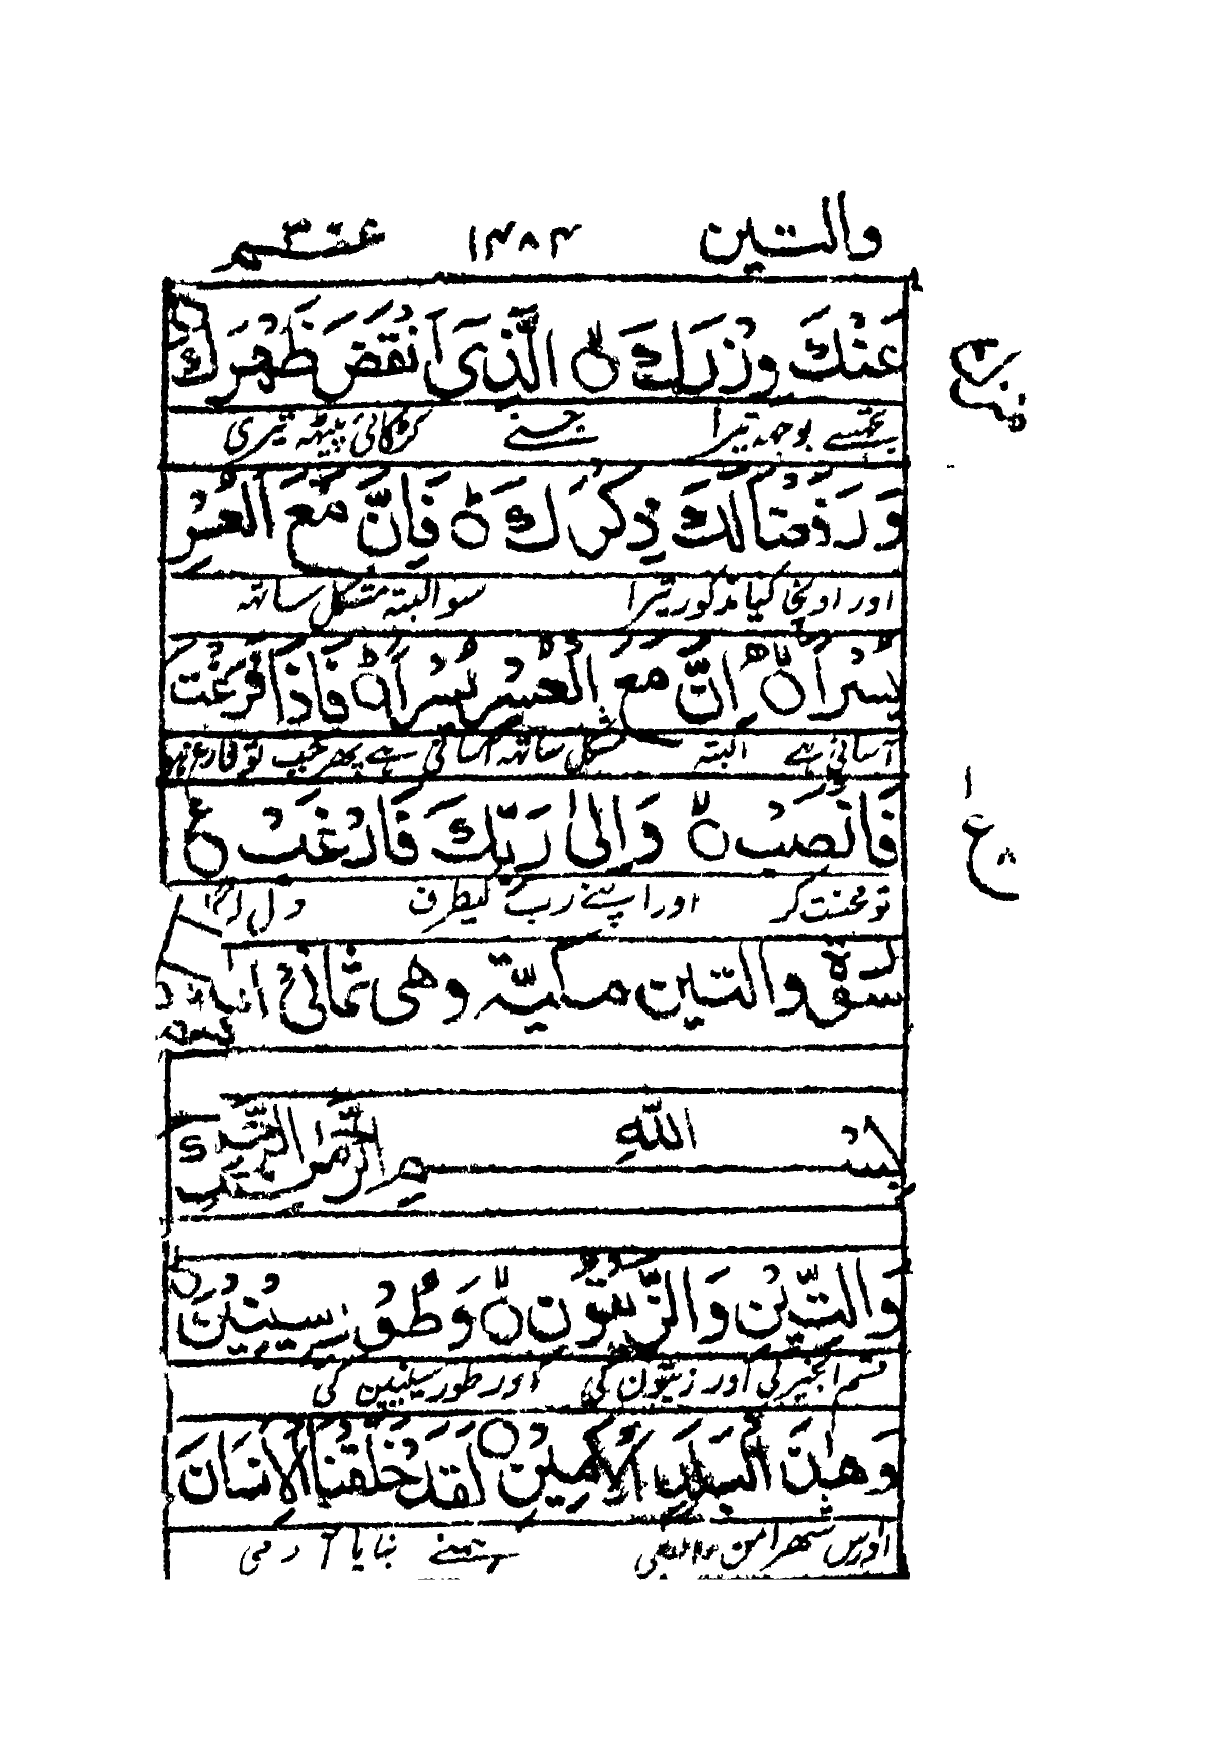 والتین ۱۴۸۴ عم ۳۰
عَنْكَ وِزْرَكَ ۝ الَّذِیْۤ اَنْقَضَ ظَهْرَكَ
تجھسے بوجھ تیرا جسنے کڑکائی پیٹھ تیری
وَرَفَعْنَا لَكَ ذِكْرَكَ ۝ فَاِنَّ مَعَ الْعُسْرِ
اور اونچا کیا مذکور تیرا سو البتہ مشکل ساتھ
یُسْرًا ۝ اِنَّ مَعَ الْعُسْرِ یُسْرًا ۝ فَاِذَا فَرَغْتَ
آسانی ہے البتہ مشکل ساتھ آسانی ہے پھر جب تو فارغ ہو
فَانْصَبْ ۝ وَاِلٰی رَبِّكَ فَارْغَبْ ۝ ع
تو محنت کر اور اپنے رب کیطرف دل لگا
سورة والتین مکیة وهی ثمانی ایات
بِسْمِ اللّٰهِ الرَّحْمٰنِ الرَّحِیْمِ
وَالتِّیْنِ وَالزَّیْتُوْنِ ۝ وَطُوْرِ سِیْنِیْنَ ۝
قسم انجیر کی اور زیتون کی اور طور سینین کی
وَهٰذَا الْبَلَدِ الْاَمِیْنِ ۝ لَقَدْ خَلَقْنَا الْاِنْسَانَ
اور اس شہر امن والے کی ہمنے بنایا آدمی
ع
۸